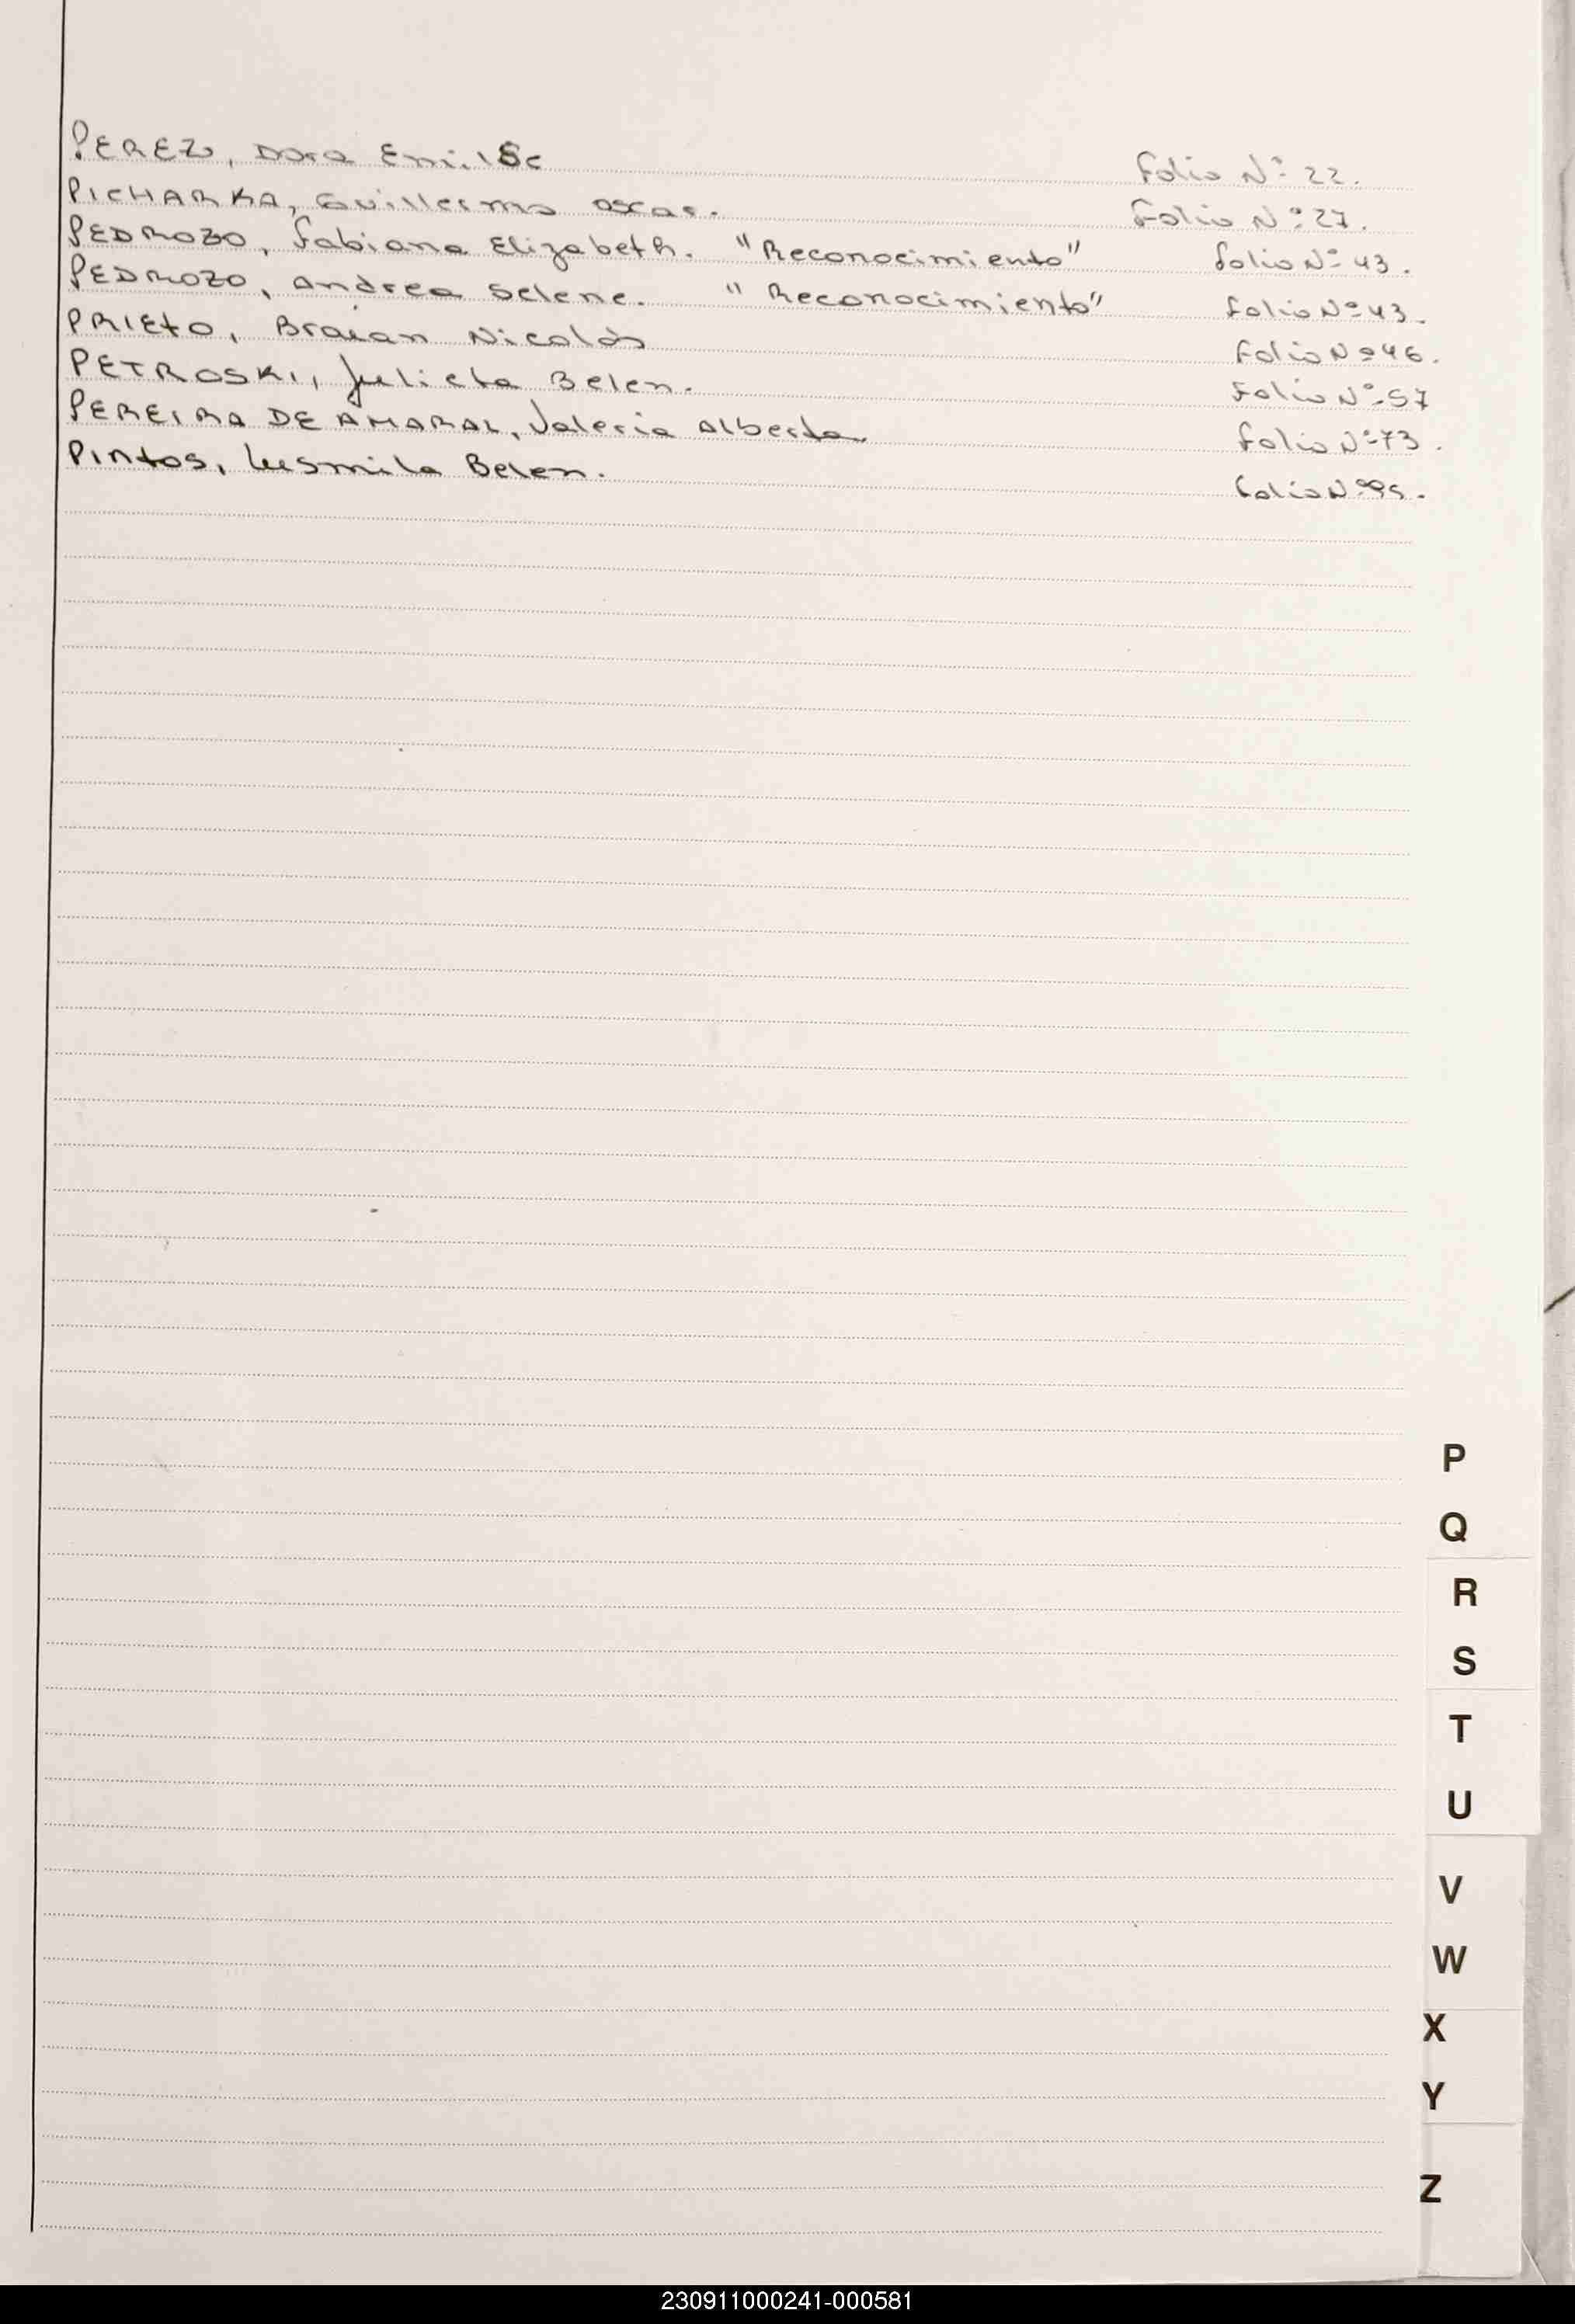 PEREZ, Dora Emilse Folio Nº 22.
PICHARKA, Guillermo Oscar. Folio Nº 27.
PEDROZO, Fabiana Elizabeth. "Reconocimiento" Folio Nº 43.
PEDROZO, Andrea Selene. "Reconocimiento" Folio Nº 43.
PRIETO, Braian Nicolás Folio Nº 46.
PETROSKI, Julieta Belen. Folio Nº 57
PEREIRA DE AMARAL, Valeria Alberta Folio Nº 73.
Pintos, Lusmila Belen. Folio Nº
P
Q
R
S
T
U
V
W
X
Y
Z
230911000241-000581